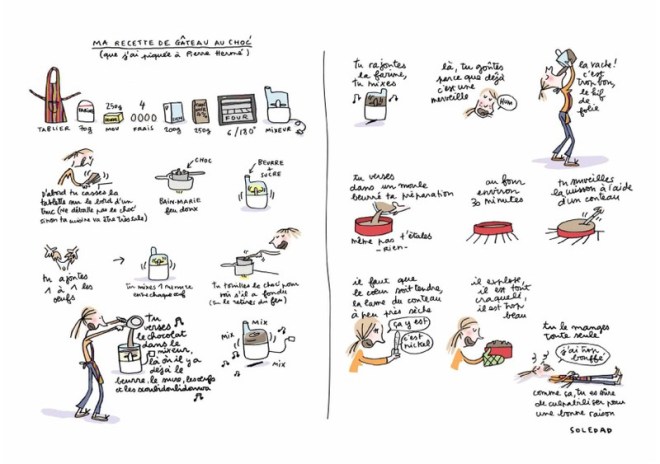 MA RECETTE DE GÂTEAU AU CHOC'
(que j'ai piquée à Pierre Hermé)
TABLIER
70g
250g
mou
4
FRAIS
200g
250g
FOUR
6/180°
MIXEUR
D'abord tu casses la
tablette sur le bord d'un
truc (ne détaille pas le choc'
sinon ta cuisine va être très sale)
CHOC
BAIN-MARIE
feu doux
BEURRE
+
SUCRE
tu ajoutes
1 à 1 les
œufs
Tu mixes 1 minute
entre chaque œuf
Tu touilles le choc' pour
voir s'il a fondu
(tu le retires du feu)
tu
verses
le chocolat
dans le
mixeur,
là où il y a
déjà le
beurre, le sucre, les œufs
et les
MIX
MIX
MIX
tu rajoutes
la farine,
tu mixes
là, tu goûtes
parce que déjà
c'est une
merveille
HUM
la vache!
c'est
trop bon,
le kif
de
folie
tu verses
dans un moule
beurré ta préparation
même pas
t'étales
-rien-
au four
environ
30 minutes
tu surveilles
la cuisson à l'aide
d'un couteau
il faut que
le cœur soit tendre,
la lame du couteau
à peu près sèche
ça y est
c'est
nickel
il explose,
il est tout
craquelé,
il est trop
beau
tu le manges
toute seule
j'ai trop
bouffé
comme ça, tu es sûre
de culpabiliser pour
une bonne raison
SOLEDAD